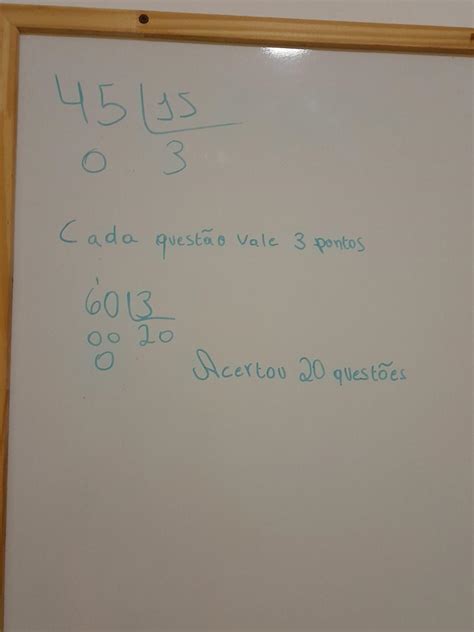 45 15
0 3
Cada questão vale 3 pontos
60 3
00 20
0
Acertou 20 questões